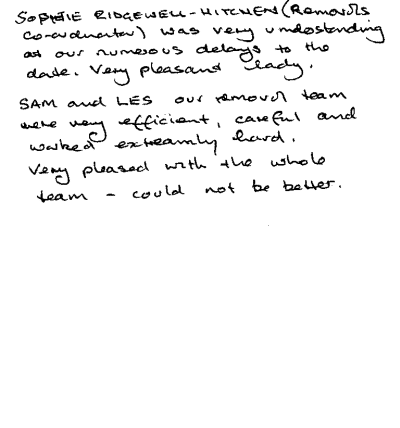 SOPHIE RIDGEWELL-HITCHEN (Removals
Co-ordinator) was very understanding
at our numerous delays to the
date. Very pleasant lady.
SAM and LES our removal team
were very efficient, careful and
worked extreamly hard.
Very pleased with the whole
team - could not be better.